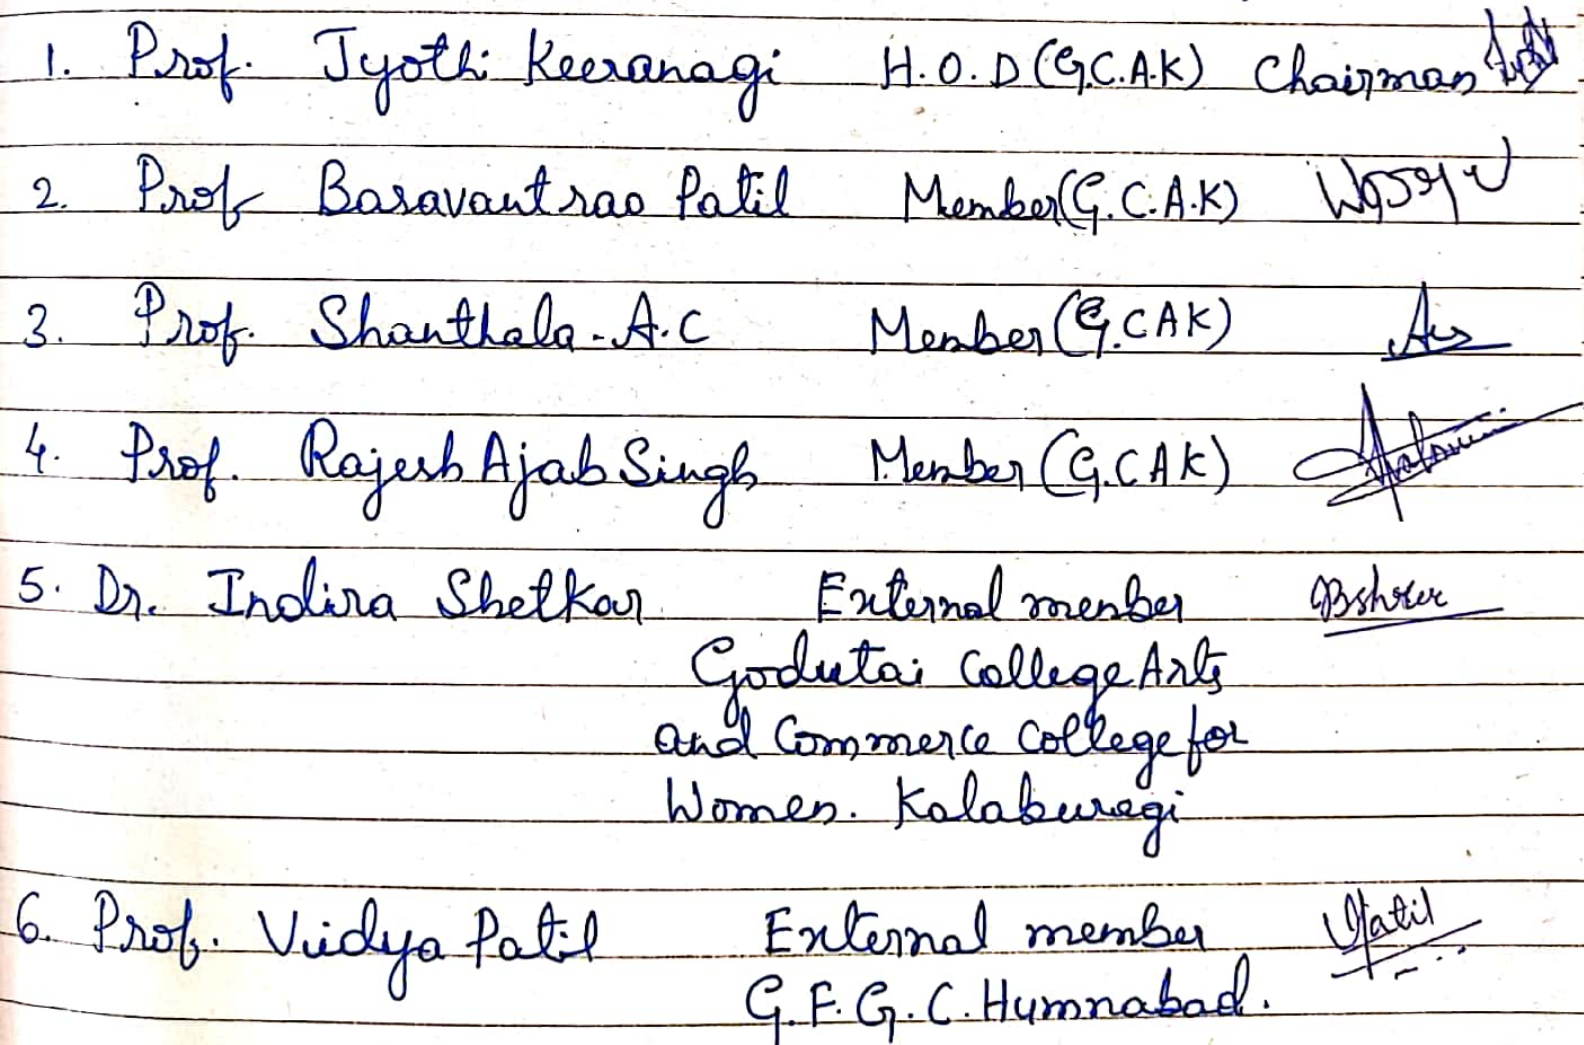 1. Prof. Jyothi Keeranagi H.O.D (G.C.A.K) Chairman
2. Prof Basavantrao Patil Member (G.C.A.K)
3. Prof. Shanthala-A.C Member (G.CAK)
4. Prof. Rajesh Ajab Singh Member (G.CAK)
5. Dr. Indira Shetkar External member
Godutai College Arts
and Commerce College for
Women. Kalaburagi
6. Prof. Vidya Patil External member Patil
G.F.G.C. Humnabad.